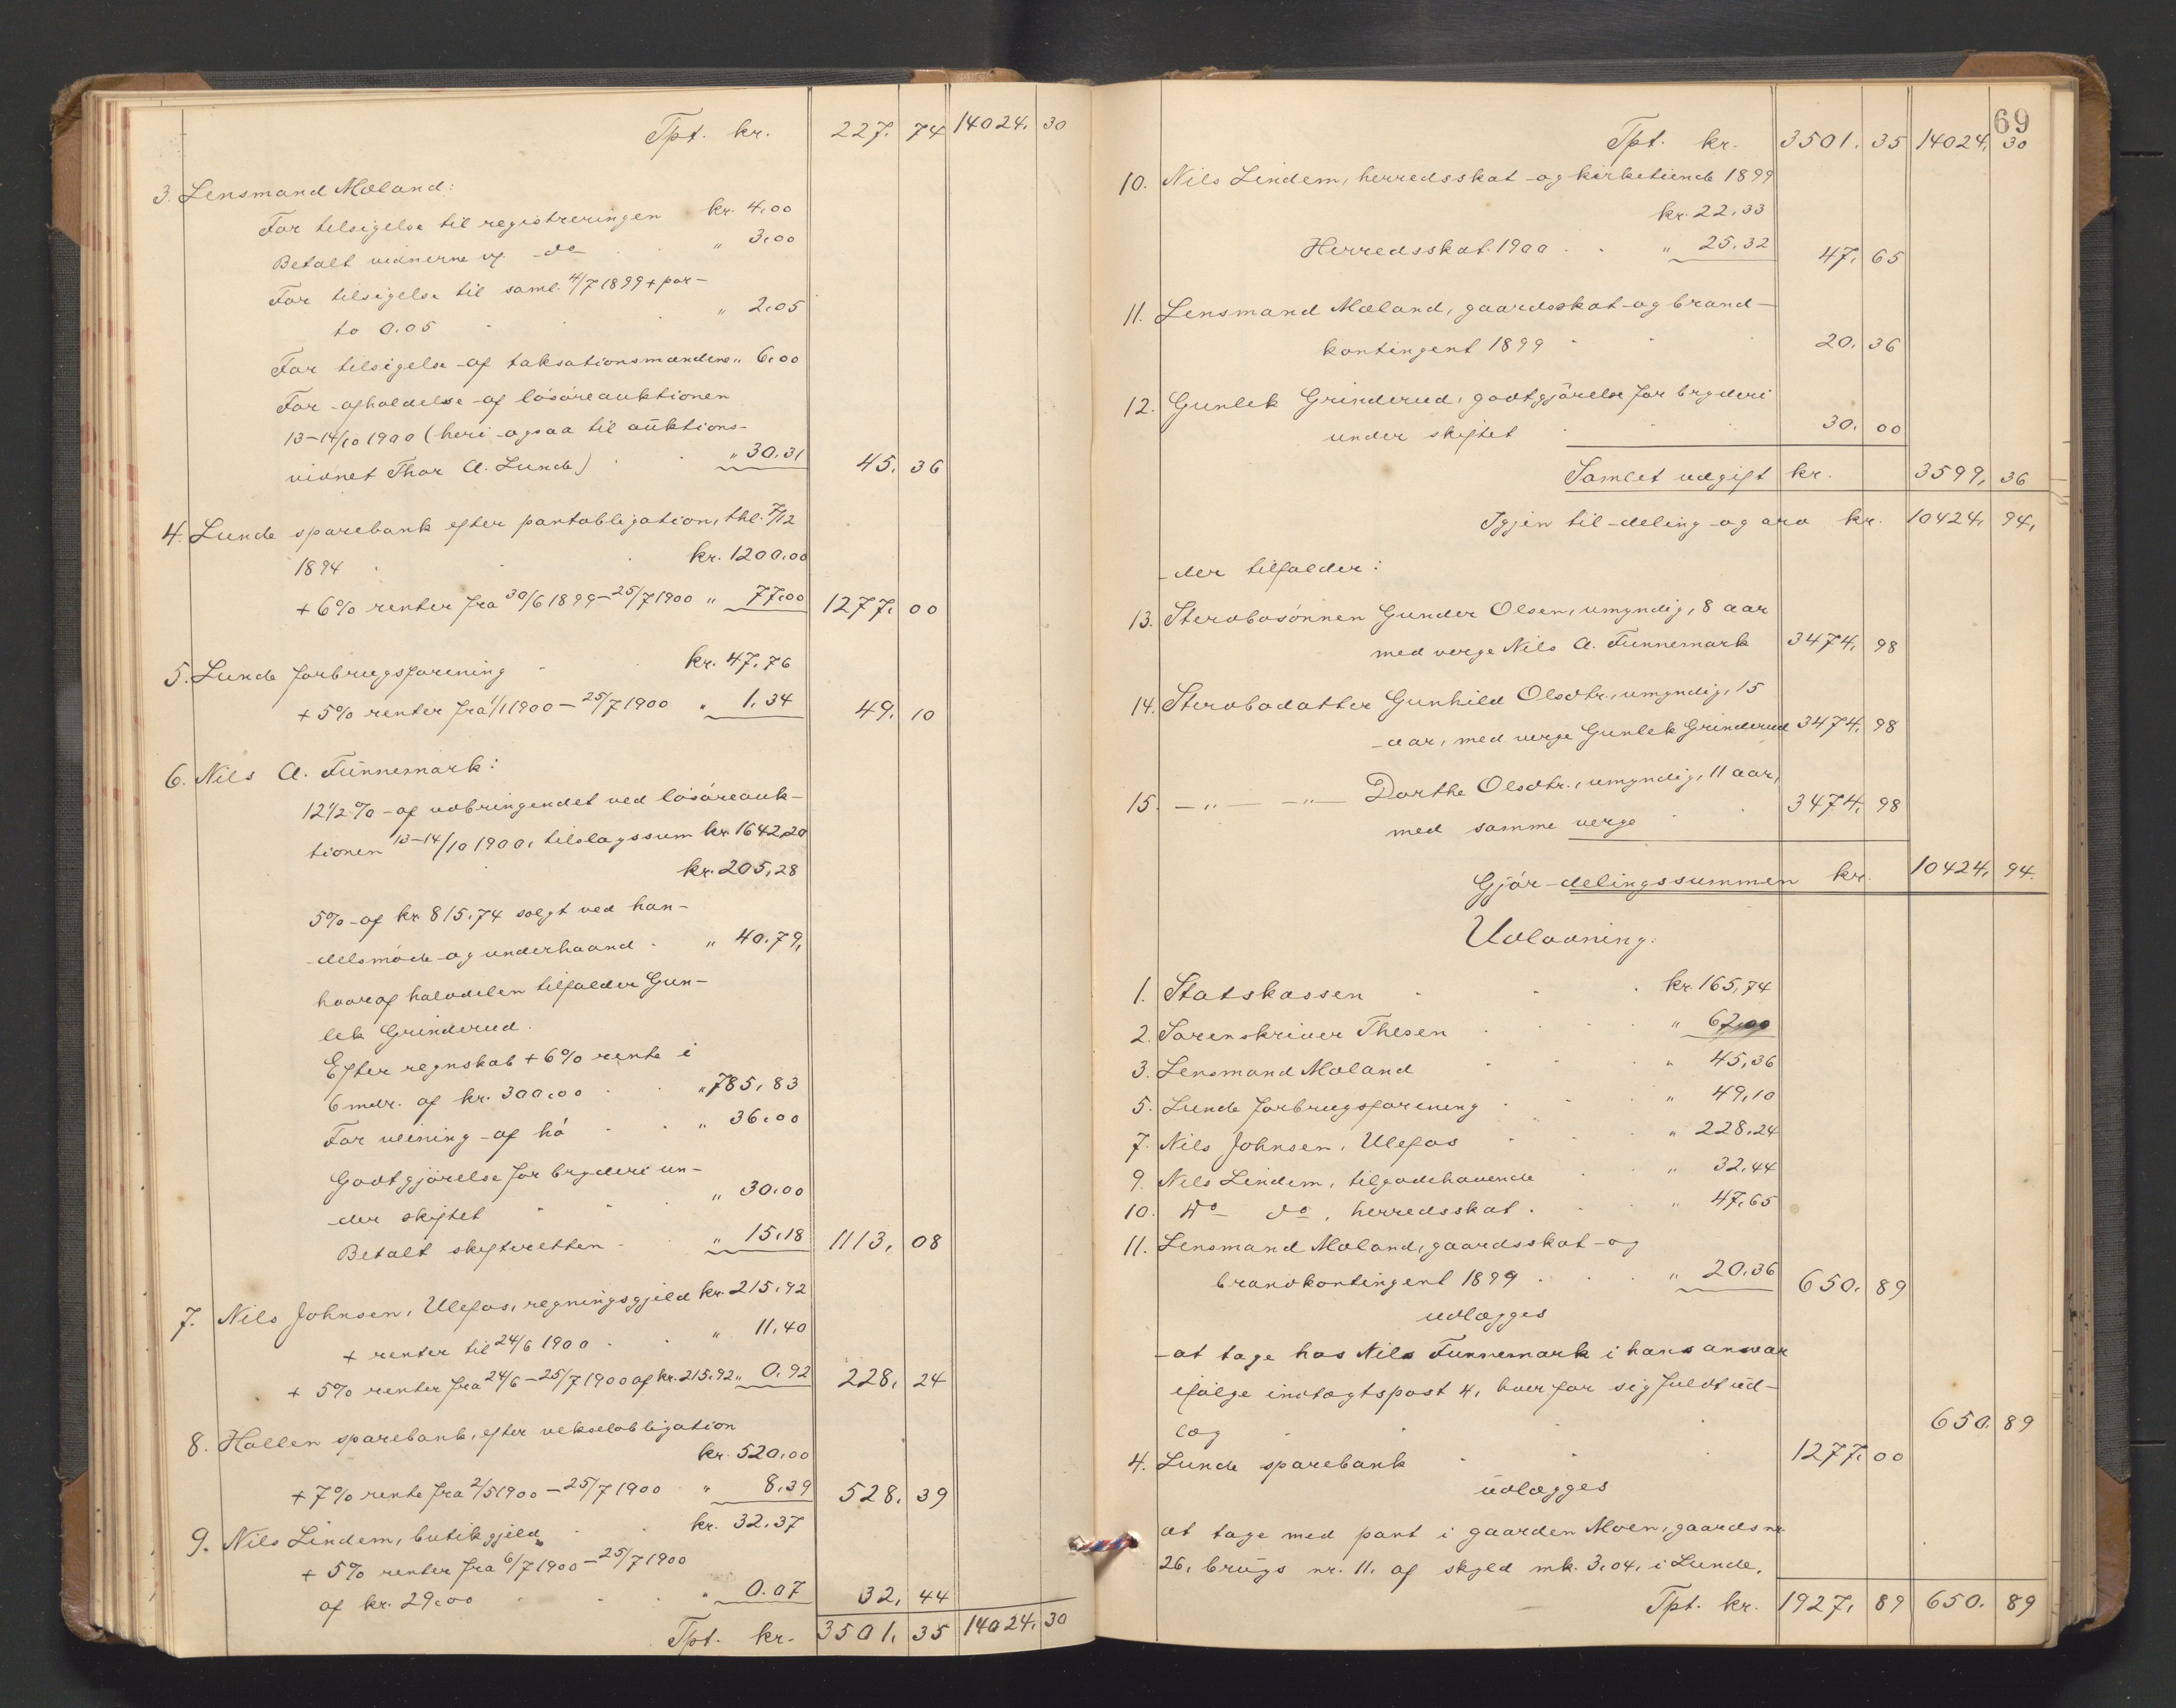 Tpt. kr. 227. 74 14024. 30
3. Lensmand Moland:
For tilsigelse til registreringen kr. 4.00
Betalt vidnerne v. do " 3.00
For tilsigelse til saml. 4/7 1899 + por-
to 0.05 " 2.05
For tilsigelse af taksationsmændene " 6.00
For afholdelse af løsøreauktionen
13-14/10 1900 (heri ogsaa til auktions-
vidnet Thor A. Lunde) " 30.31 45. 36
4. Lunde sparebank efter pantobligation, thl. 7/12
1894 kr. 1200.00
+ 6% renter fra 30/6 1899 - 25/7 1900 " 77.00 1277. 00
5. Lunde forbrugsforening kr. 47.76
+ 5% renter fra 1/1 1900 - 25/7 1900 " 1.34 49. 10
6. Nils A. Funnemark:
12 1/2 % af udbringendet ved løsøreauk-
tionen 13-14/10 1900, tilslagssum kr. 1642.20
kr. 205,28
5% af kr. 815.74 solgt ved han-
delsmøde og underhaand " 40.79,
hvoraf halvdelen tilfalder Gun-
lek Grinderud.
Efter regnskab + 6% rente i
6 mdr. af kr. 300.00 " 785,83
For veining af hø " 36.00
Godtgjørelse for bryderi un-
der skiftet " 30.00
Betalt skifteretten " 15.18 1113. 08
7. Nils Johnsen, Ulefos, regningsgjeld kr. 215,92
+ renter til 24/6 1900 " 11.40
+ 5% renter fra 24/6 - 25/7 1900 af kr. 215.92 " 0.92 228. 24
8. Hollen sparebank, efter vekselobligation
kr. 520.00
+ 7% rente fra 2/5 1900 - 25/7 1900 " 8.39 528. 39
9. Nils Lindem, butikgjeld kr. 32.37
+ 5% renter fra 6/7 1900 - 25/7 1900
af kr. 29.00 " 0.07 32. 44
Tpt. kr. 3501. 35 14024. 30
69
Tpt. kr. 3501. 35 14024. 30
10. Nils Lindem, herredsskat og kirketiende 1899
kr. 22.33
Herredsskat 1900 " 25.32 47. 65
11. Lensmand Moland, gaardsskat og brand-
kontingent 1899 20. 36
12. Gunlek Grinderud, godtgjørelse for bryderi
under skiftet 30. 00
Samlet udgift kr. 3599. 36
Igjen til deling og arv kr. 10424. 94.
der tilfalder:
13. Stervbosønnen Gunder Olsen, umyndig, 8 aar
med verge Nils A. Funnemark 3474. 98
14. Stervbodatter Gunhild Olsdtr., umyndig, 15
aar, med verge Gunlek Grinderud 3474. 98
15. - " - - " - Dorthe Olsdtr., umyndig, 11 aar,
med samme verge 3474. 98
Gjør delingssummen kr. 10424. 94.
Udlodning:
1. Statskassen kr. 165,74
2. Sorenskriver Thesen " 62.00
3. Lensmand Moland " 45,36
5. Lunde forbrugsforening " 49,10
7. Nils Johnsen, Ulefos " 228.24
9. Nils Lindem, tilgodehavende " 32.44
10. do do, herredsskat " 47.65
11. Lensmand Moland, gaardsskat og
brandkontingent 1899 " 20.36 650. 89
udlægges
at tage hos Nils Funnemark i hans ansvar
ifølge indtægtspost 4, hver for sig fuldt ud-
læg 650. 89
4. Lunde sparebank 1277. 00
udlægges
at tage med pant i gaarden Moen, gaardsnr.
26, brugs nr. 11. af skyld mk. 3.04, i Lunde.
Tpt. kr. 1927. 89 650. 89